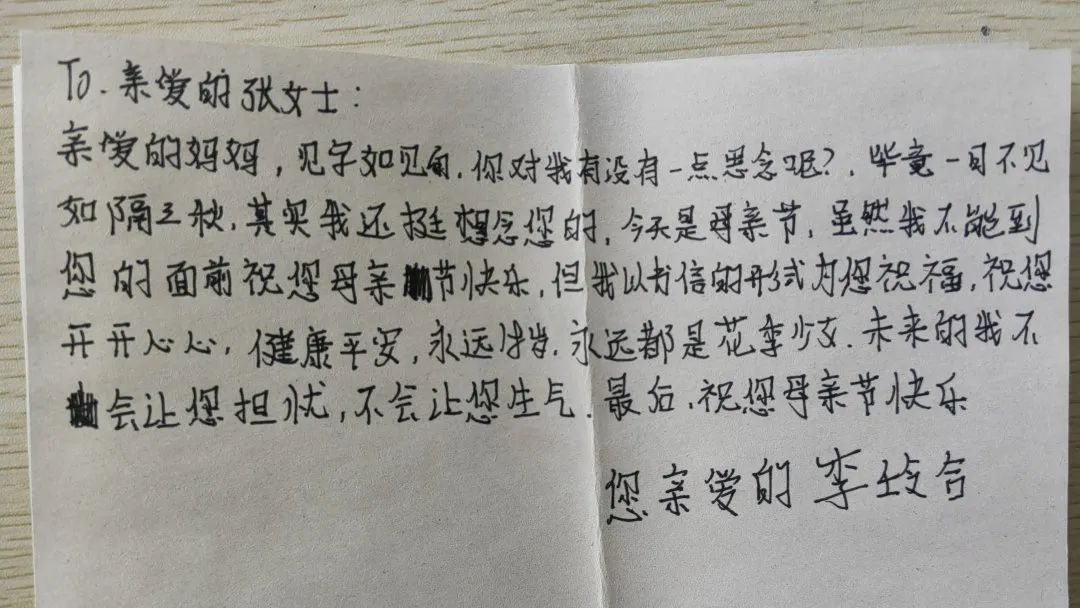 To.亲爱的张女士：
亲爱的妈妈，见字如见面.你对我有没有一点思念呢？.毕竟一日不见
如隔三秋.其实我还挺想念您的，今天是母亲节，虽然我不能到
您的面前祝您母亲节快乐，但我以书信的形式为您祝福，祝您
开开心心，健康平安，永远18岁.永远都是花季少女.未来的我不
会让您担忧，不会让您生气.最后，祝您母亲节快乐
您亲爱的李